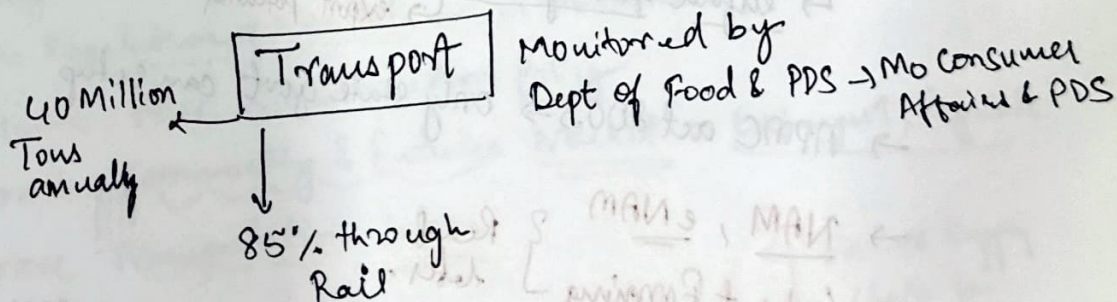 Transport
Monitored by
Dept of Food & PDS → Mo Consumer
Affairs & PDS
40 Million
Tons
annually
85% through
Rail